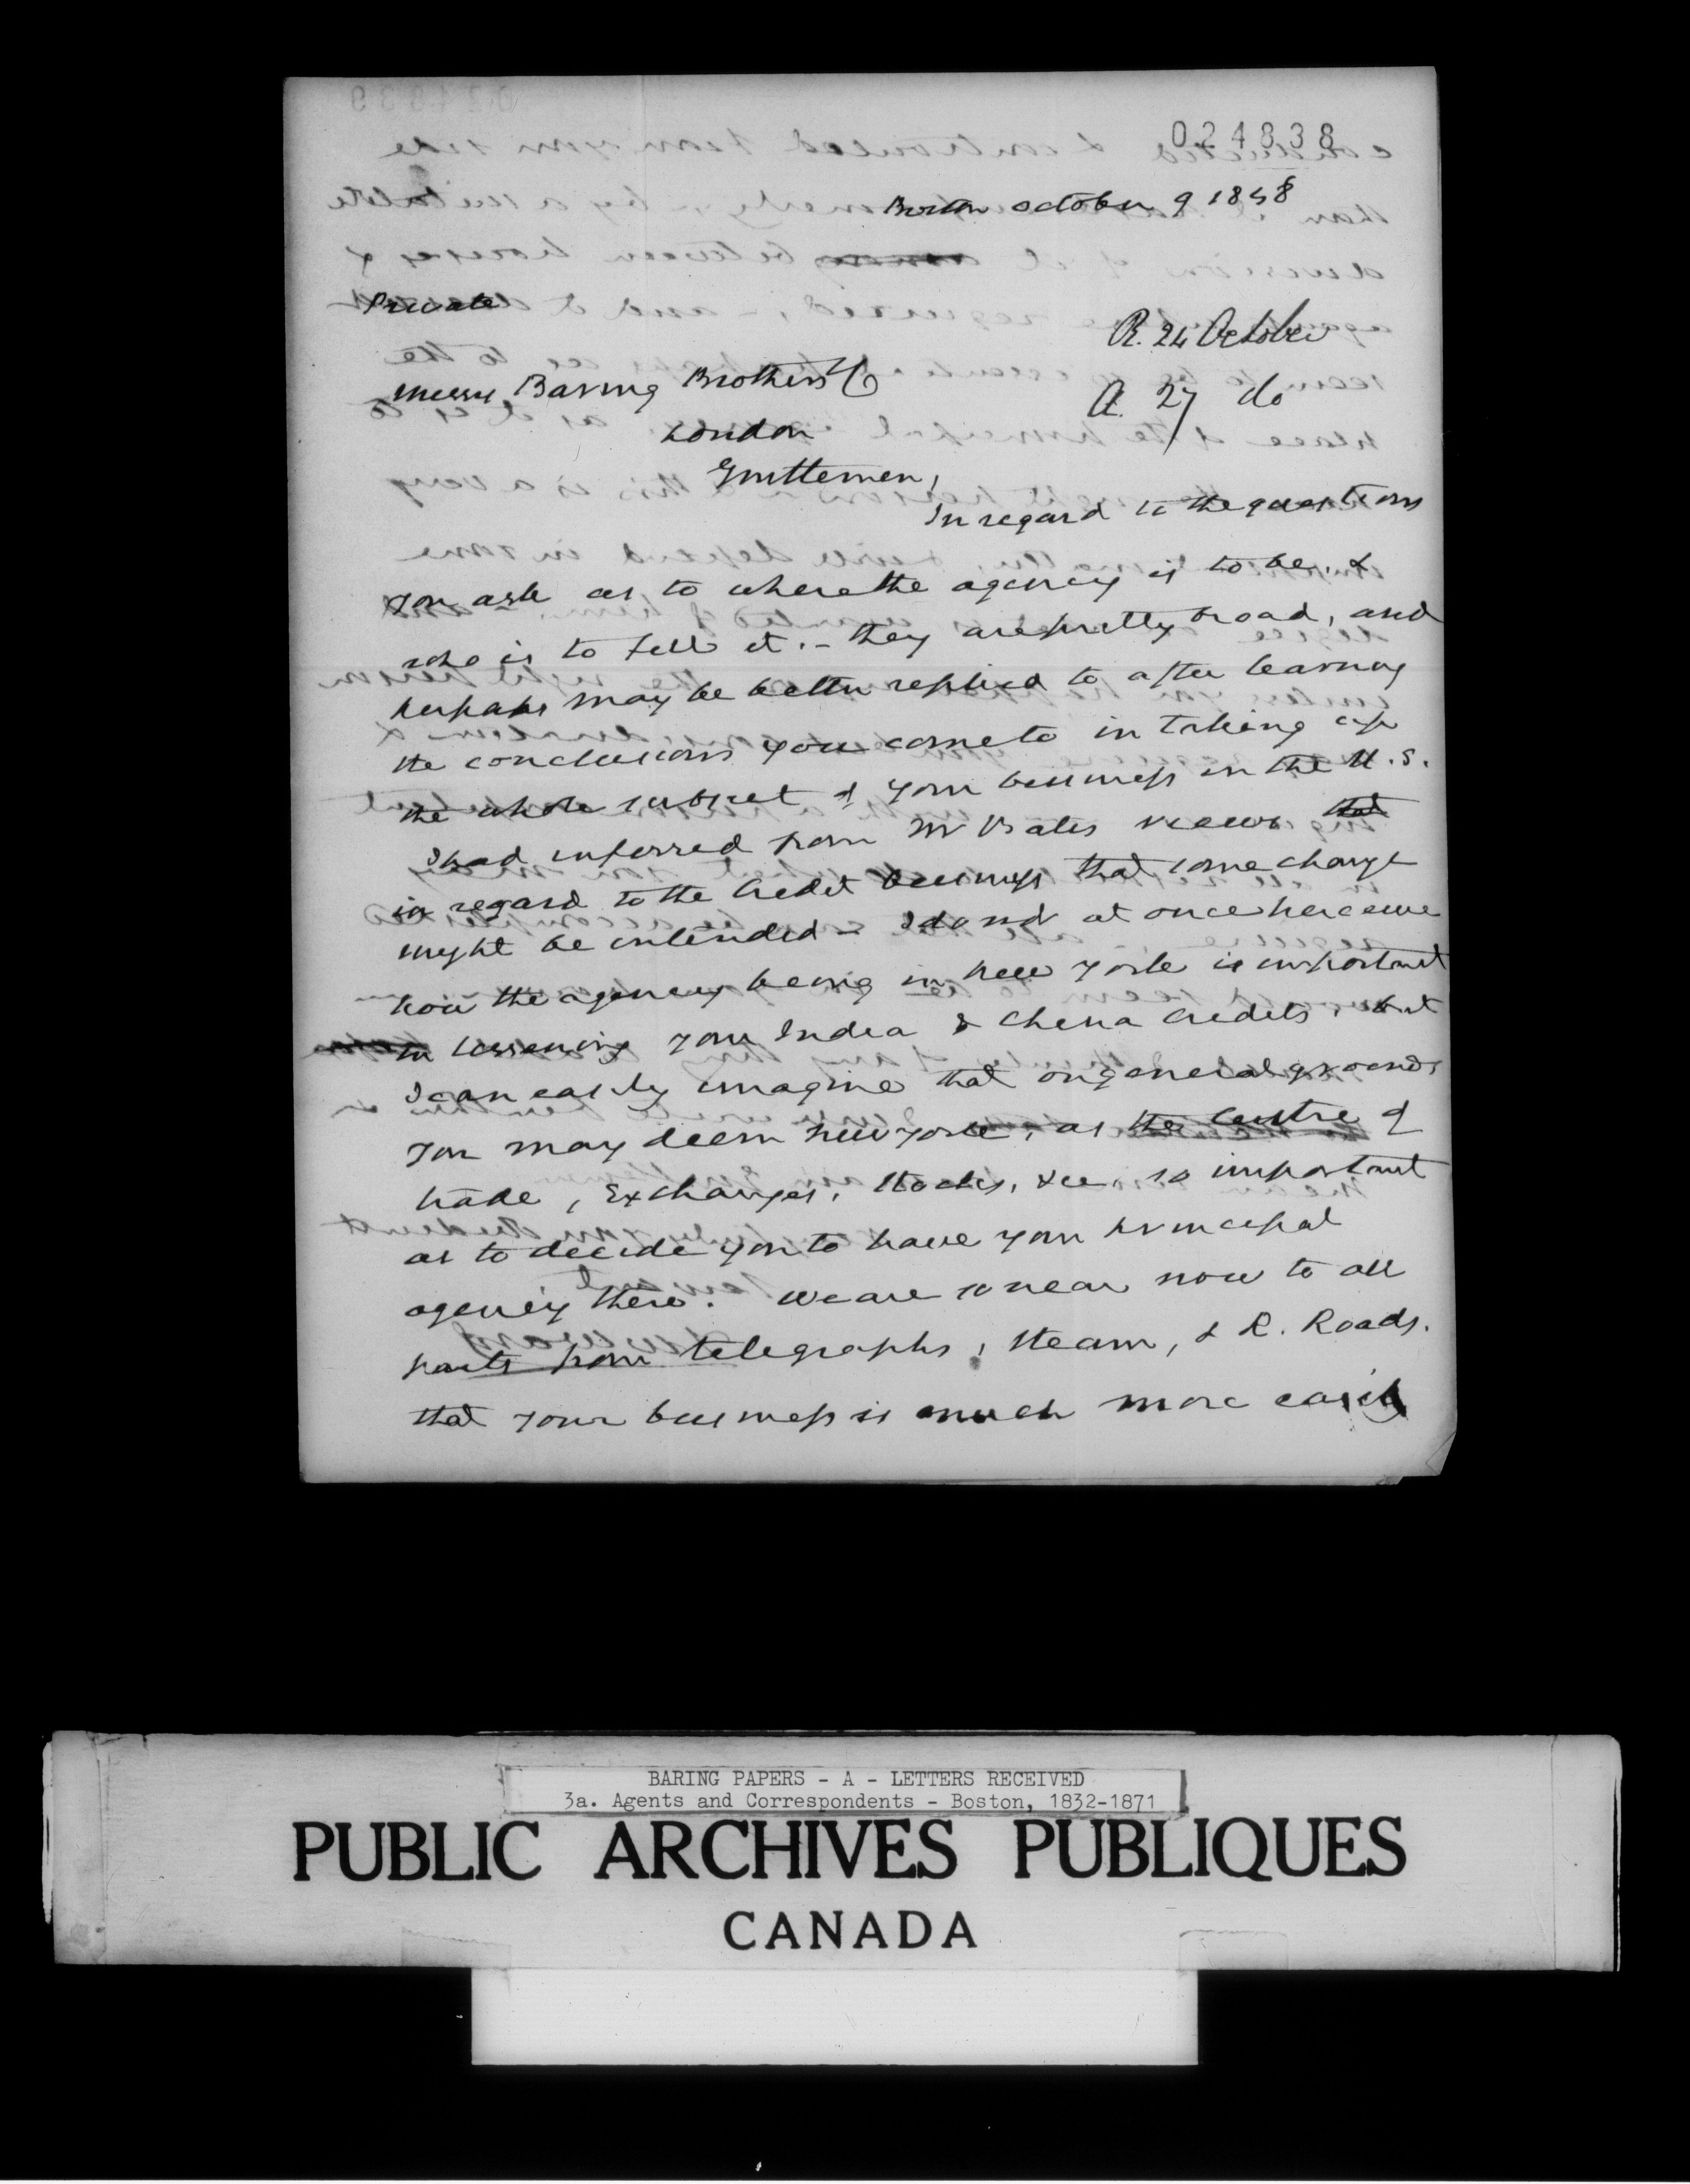 024838
Boston October 9 1858
Private
R. 24 October
Messrs Baring Brothers & Co
A. 27 do
London
Gentlemen,
In regard to the questions
you ask as to where the agency is to be, &
who is to fill it. – they are pretty broad, and
perhaps may be better replied to after learning
the conclusions you come to in taking up
the whole subject of your business in the U.S.
I had inferred from Mr Bates views that
in regard to the Credit business that some change
might be intended – I do not at once perceive
how the agency being in New York is important
in lessening your India & China Credits, but
I can easily imagine that on general grounds
you may deem New York, as the Centre of
trade, Exchanges, Stocks, &ce, so important
as to decide you to have your principal
agency there. We are so near now to all
parts from telegraphs, steam, & R. Roads.
that your business is much more easily
BARING PAPERS - A - LETTERS RECEIVED
3a. Agents and Correspondents - Boston, 1832-1871
PUBLIC ARCHIVES PUBLIQUES
CANADA